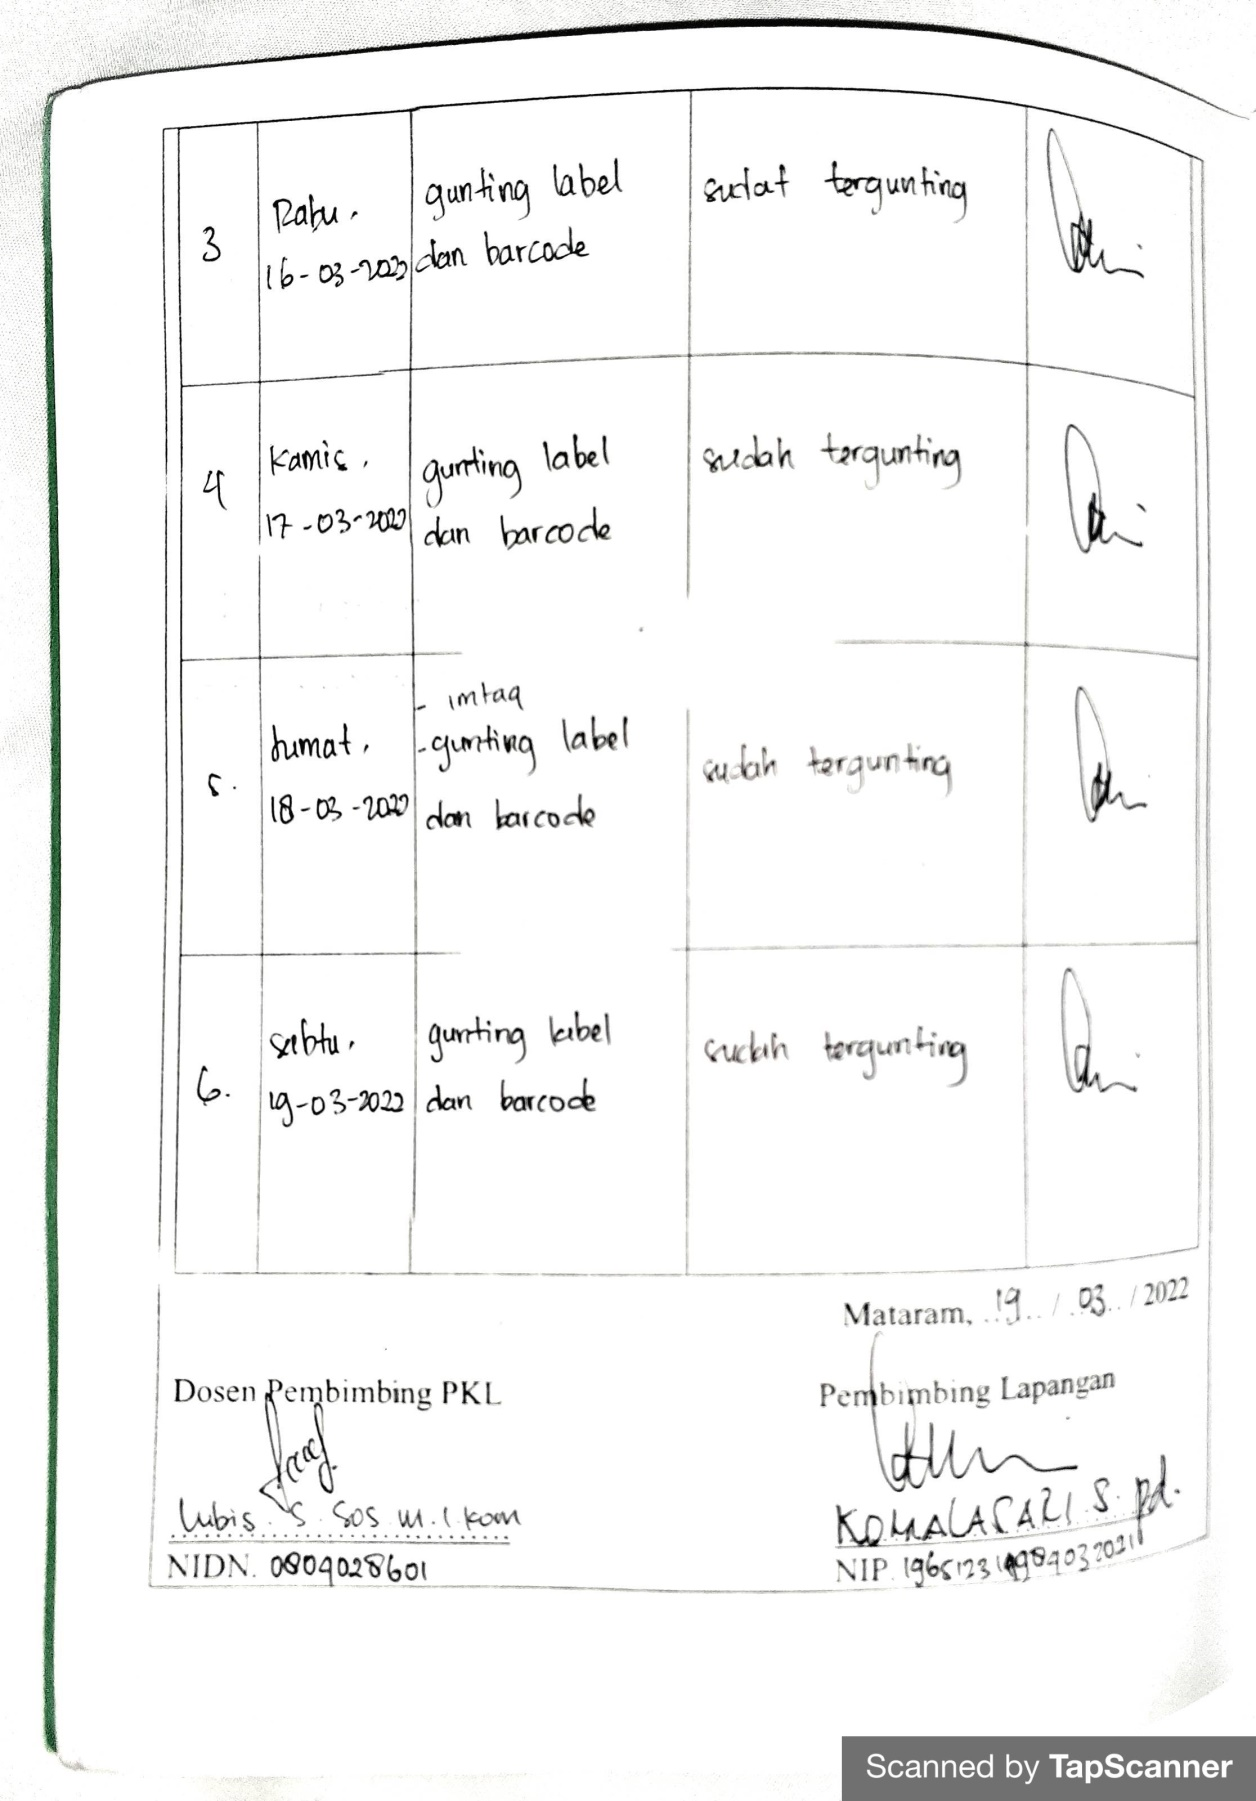 3
Rabu,
16-03-2022
gunting label
dan barcode
sudat tergunting
4
Kamis,
17-03-2022
gunting label
dan barcode
sudah tergunting
5.
Jumat,
18-03-2022
- imtaq
- gunting label
dan barcode
sudah tergunting
6.
sabtu,
19-03-2022
gunting label
dan barcode
sudah tergunting
Mataram, 19 / 03 / 2022
Dosen Pembimbing PKL
Pembimbing Lapangan
Lubis S. Sos M. I. Kom
NIDN. 0809028601
KOMALASARI S. Pd.
NIP.
Scanned by TapScanner